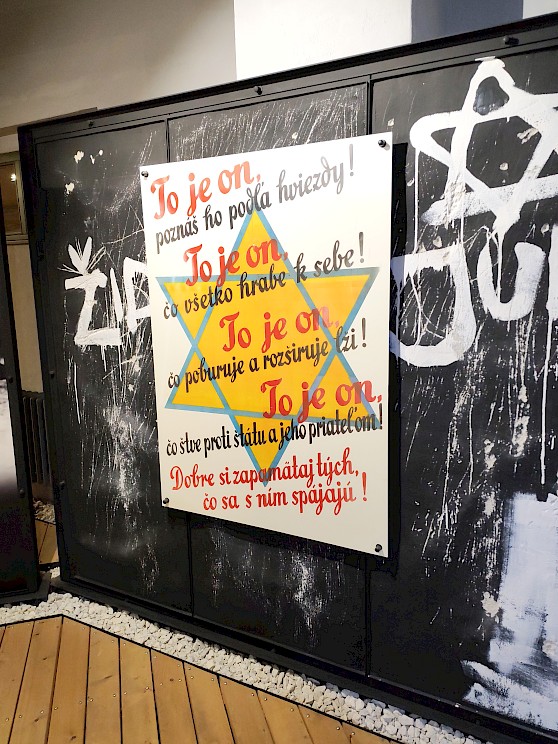 To je on,
poznáš ho podľa hviezdy!
To je on,
čo všetko hrabe k sebe!
To je on,
čo poburuje a rozširuje lži!
To je on,
čo štve proti štátu a jeho priateľom!
Dobre si zapamätaj tých,
čo sa s ním spájajú!